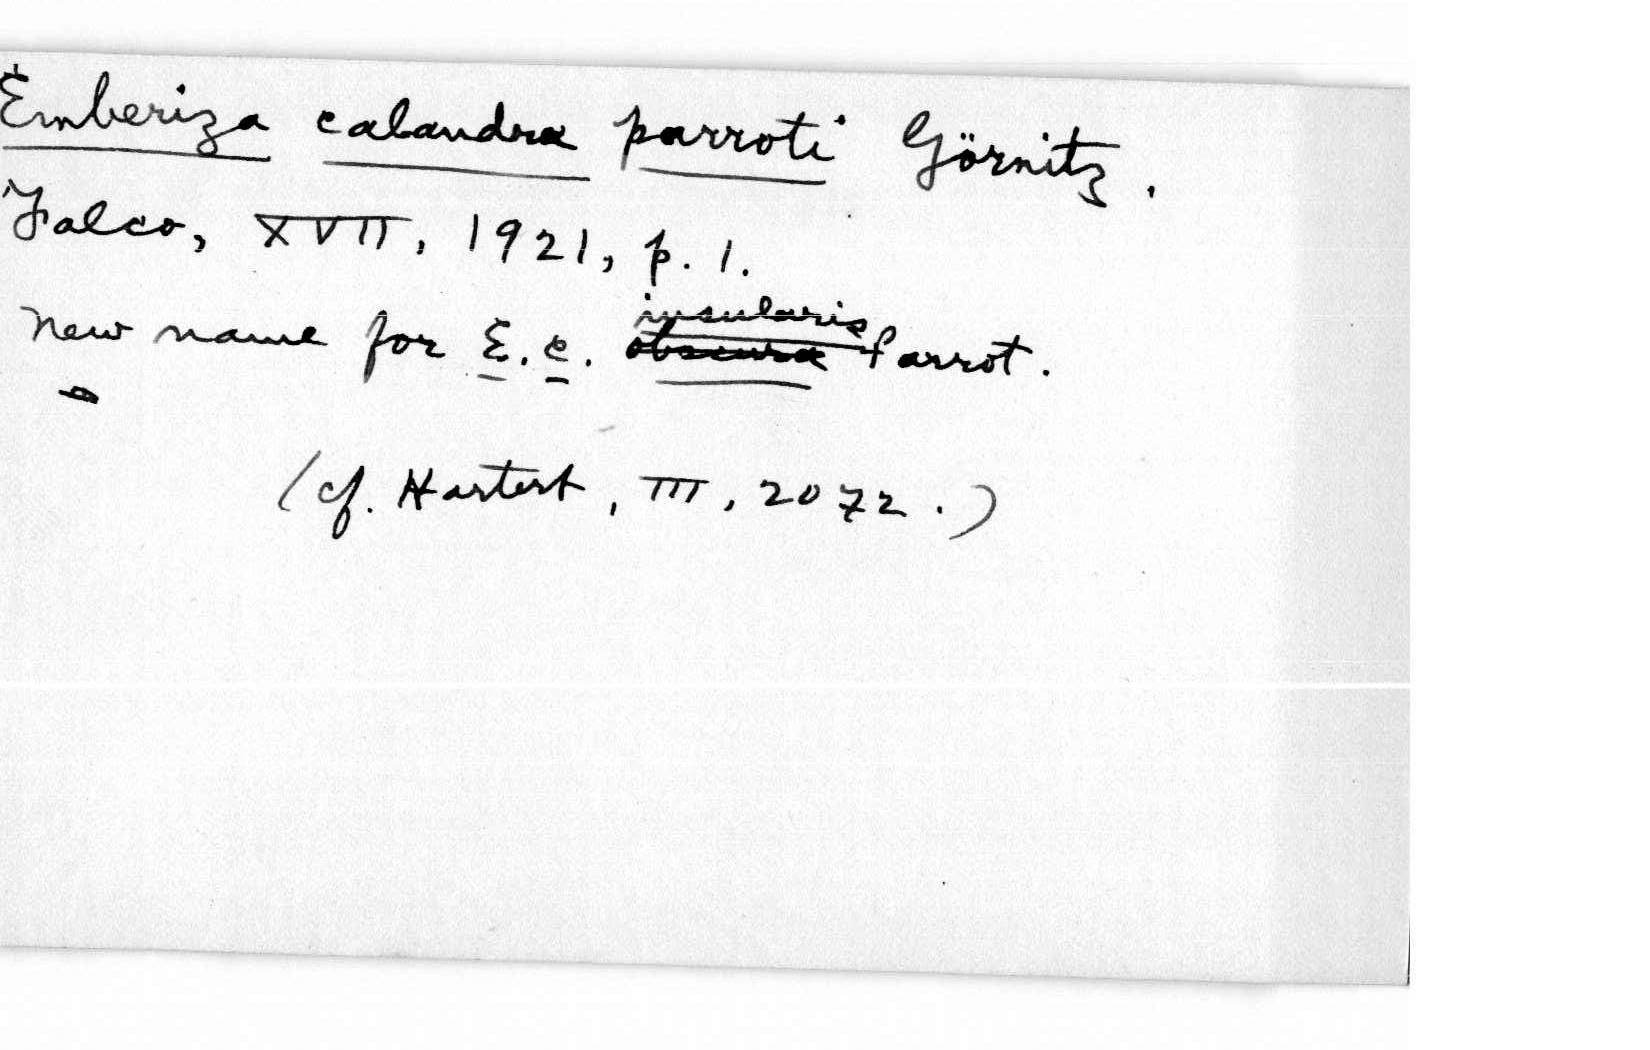 Emberiza calandra parroti Görnitz.
Falco, XVII, 1921, p. 1.
New name for E. c. obscura insularis Parrot.
(cf. Hartert, III, 2072.)